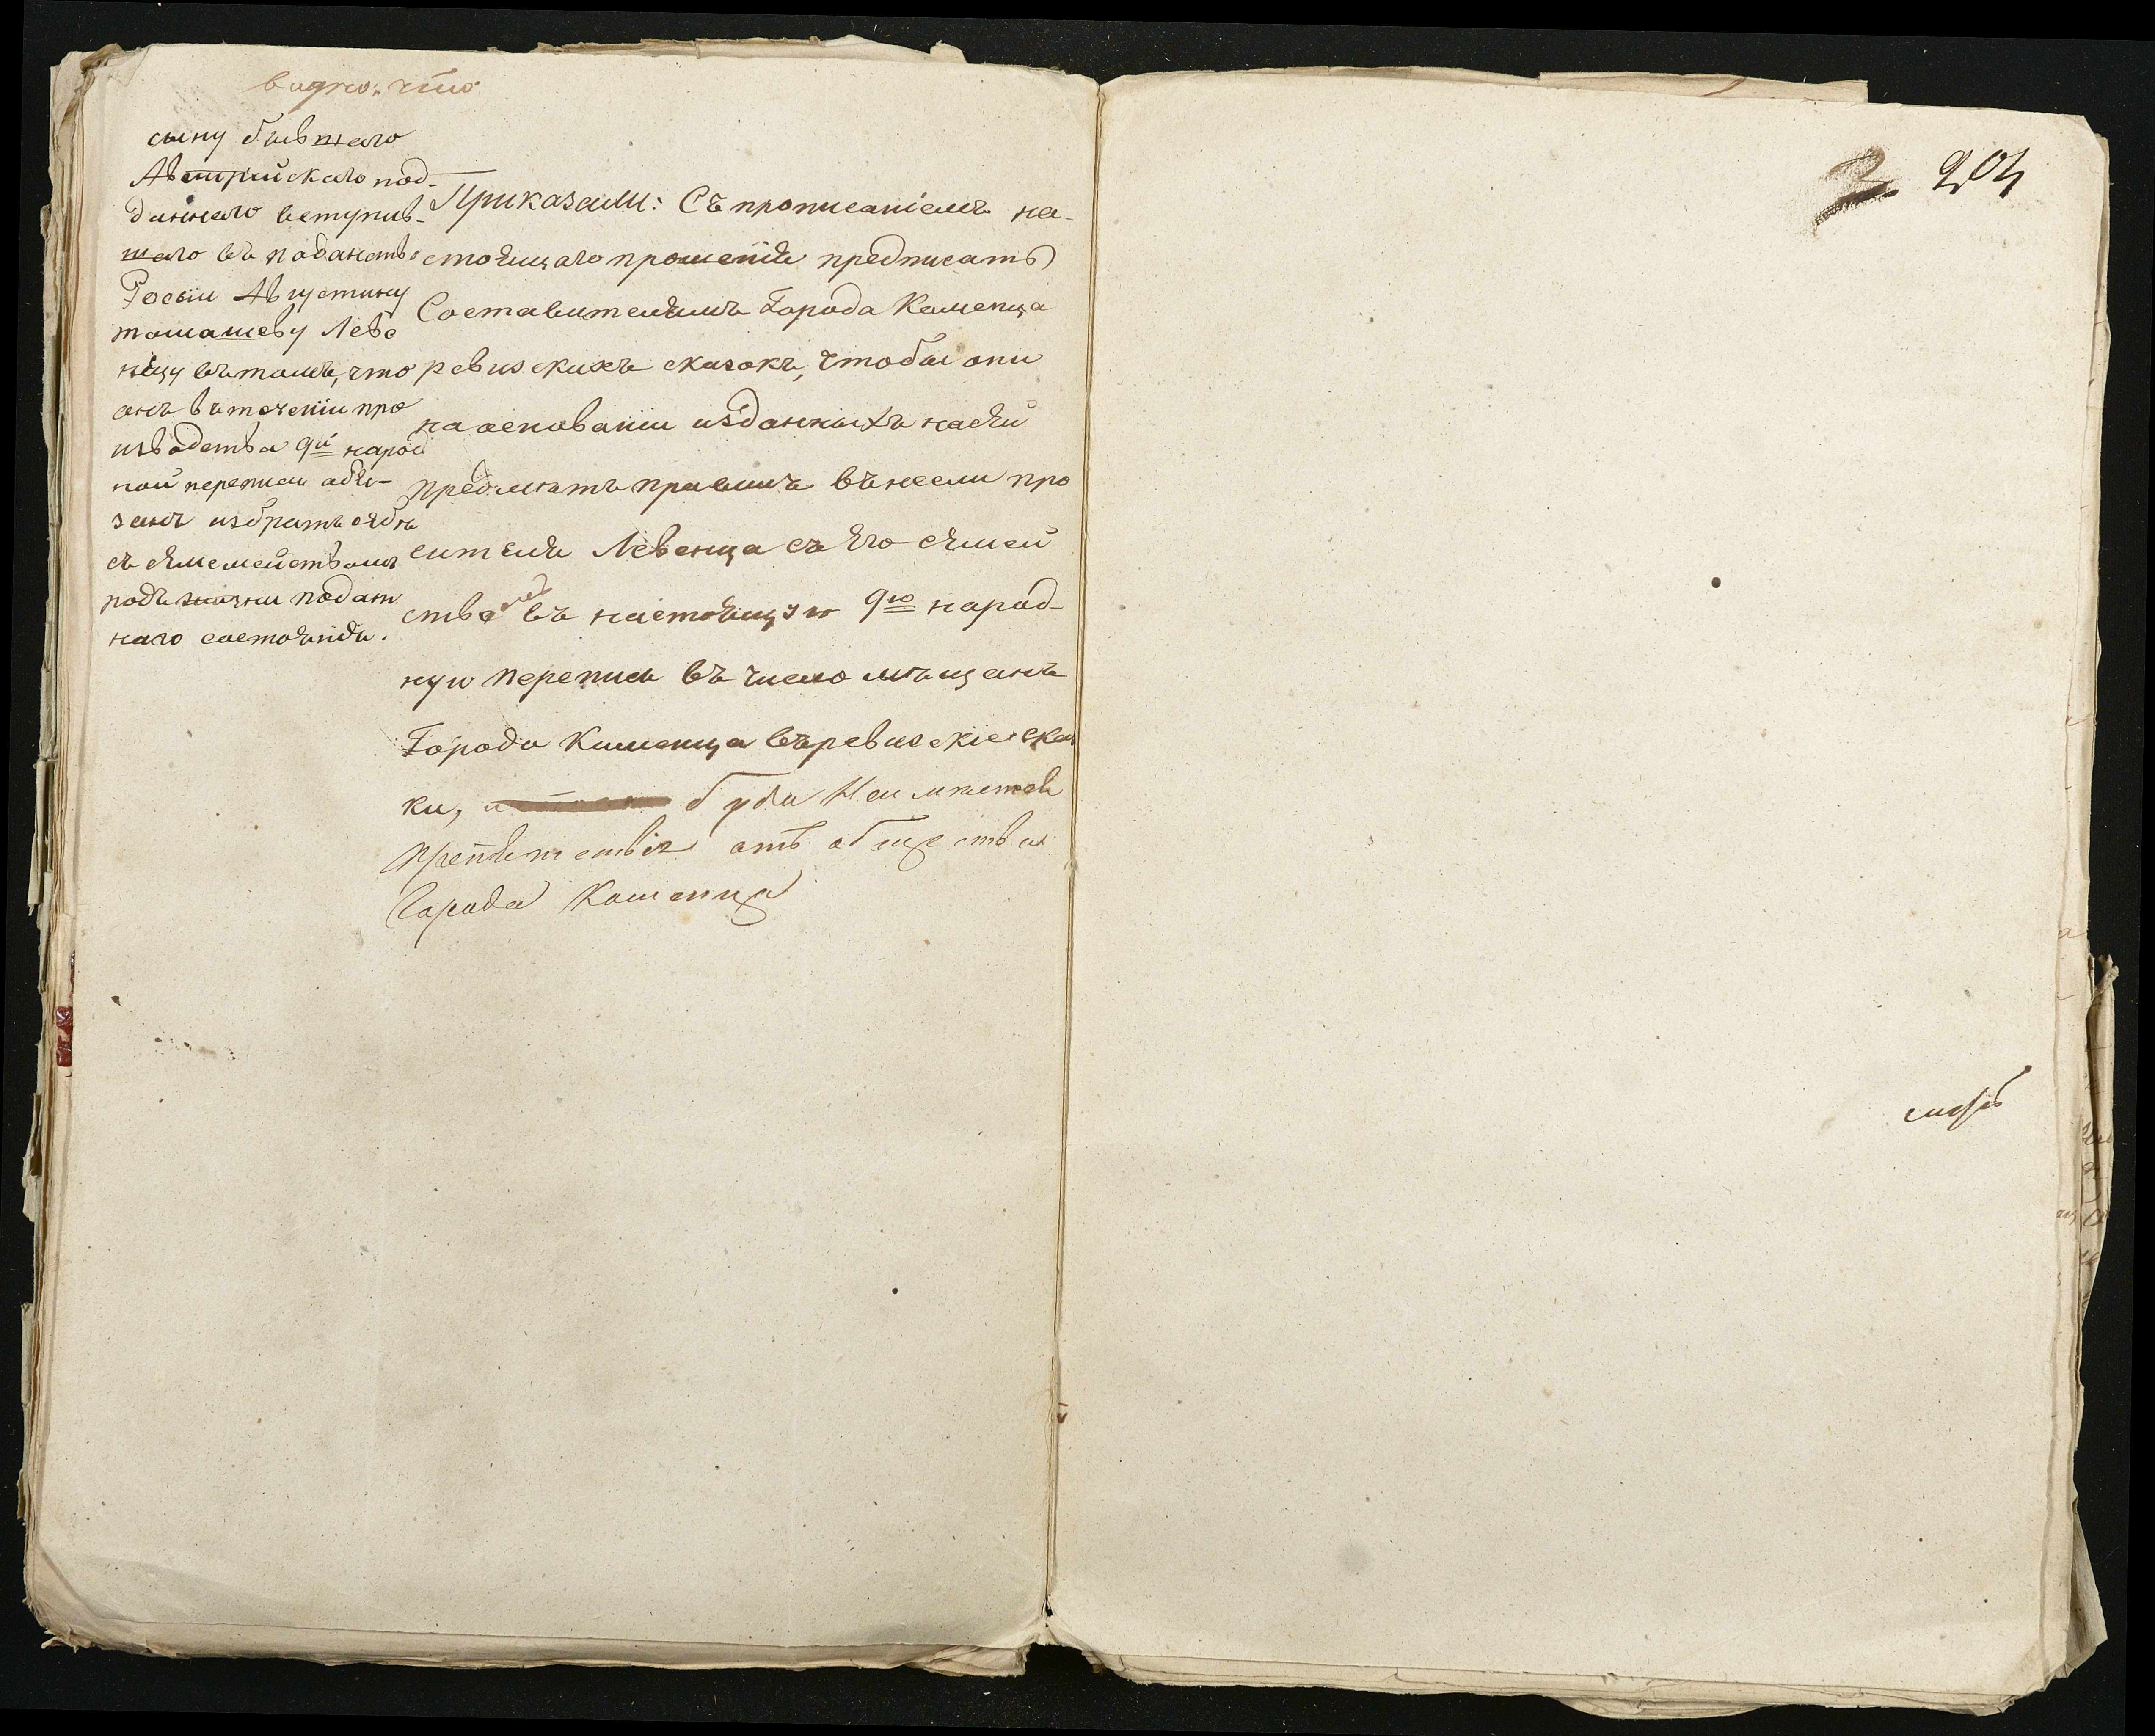 видно: что
сыну бывшаго
Австрійскаго под-
даннаго вступив-
шаго въ поданство
Росіи Августину
томашеву Леве
нцу въ томъ, что
онъ въ теченіи про
изводства 9й народ
ной переписи обя-
занъ избрать себѣ
съ семействомъ
родъ жизни податн
наго состоянія.
Приказали: Съ прописаніемъ на-
стоящаго прошенія предписать
Составителямъ Города Каменца
ревизскихъ сказокъ, чтобы они
на основаніи изданныхъ на сей
предметъ правилъ внесли про
сителя Левенца съ Его семей
ства въ настоящую 9ю народ-
ную перепись въ число мѣщанъ
Города Каменца въ ревизскіе сказ
ки, буде Неимѣется
препятствія отъ общества
Города Каменца
2 204